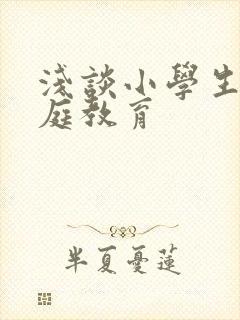 淺談小學生
庭教育
半夏憂蓮